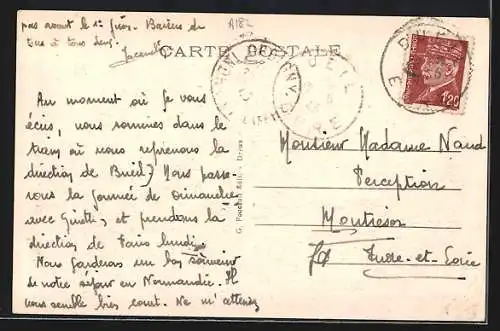 pas avant le 1er Juin. Baisers de
tous à tous deux.
A182
CARTE POSTALE
Au moment où je vous
écris, nous sommes dans le
train où nous reprenons la
direction de Bueil. Nous passe-
rons la journée de dimanche
avec Ginette, et prendrons la
direction de Paris lundi.
Nous garderons un bon souvenir
de notre séjour en Normandie. Il
nous semble bien court. Ne m'attendez
G. Foucault Edit. - Dreux
BUEIL
EURE
1F20
Monsieur Madame Naud
Perception
Montrésor
Indre-et-Loire